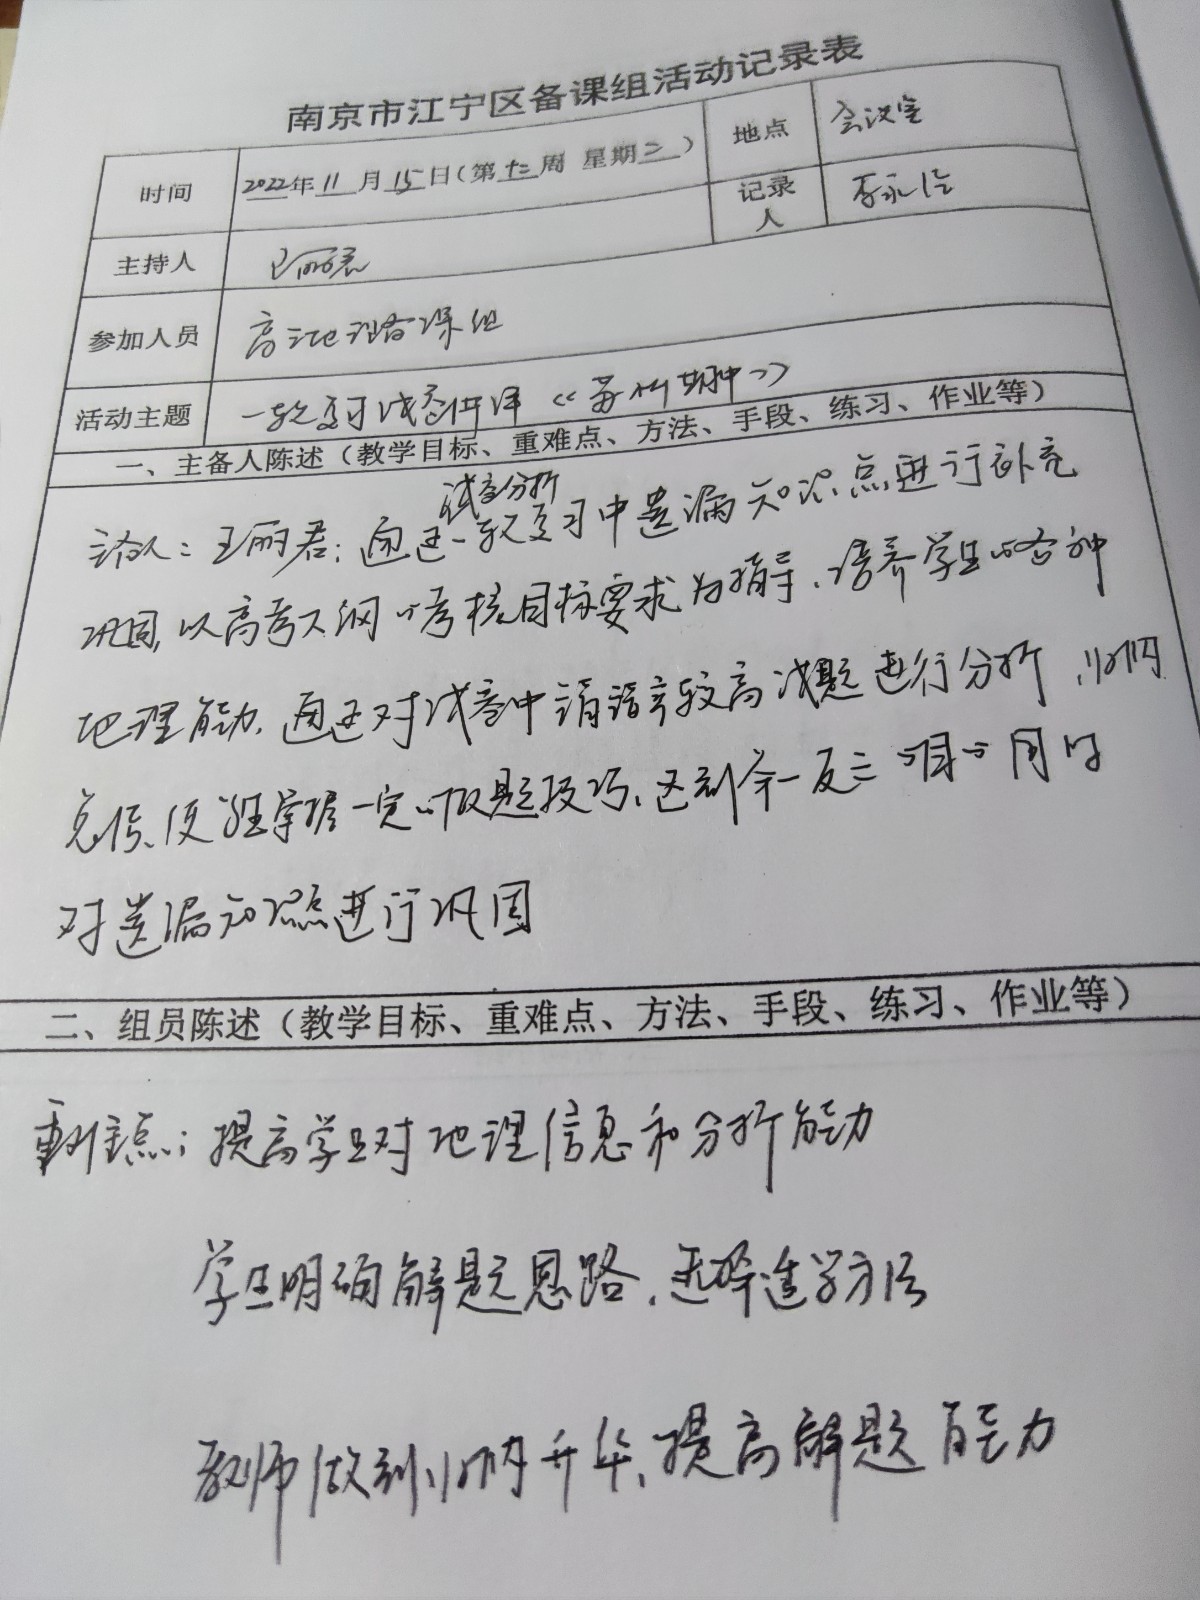 南京市江宁区备课组活动记录表
时间 2022年11月15日(第十二周 星期二) 地点 会议室
记录人 李永
主持人 王丽君
参加人员 高三地理备课组
活动主题 一轮复习试卷讲评《苏州期中》
一、主备人陈述(教学目标、重难点、方法、手段、练习、作业等)
试卷分析
主备人:王丽君:通过一轮复习中遗漏知识点进行补充
巩固,以高考大纲的考核目标要求为指导、培养学生的各种
地理能力、通过对试卷中错误率较高试题进行分析,归纳
总结、使学生掌握一定的解题技巧、达到举一反三的目的同时
对遗漏知识点进行巩固
二、组员陈述(教学目标、重难点、方法、手段、练习、作业等)
重难点:提高学生对地理信息和分析能力
学生明确解题思路、选择适当方法
教师做到归纳升华、提高解题能力